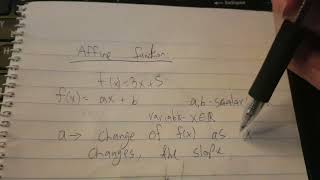 Affine function:
f(x)=3x+5
f(x)= ax + b a,b - scalar
variable x∈R
a → change of f(x) as
changes, the slope